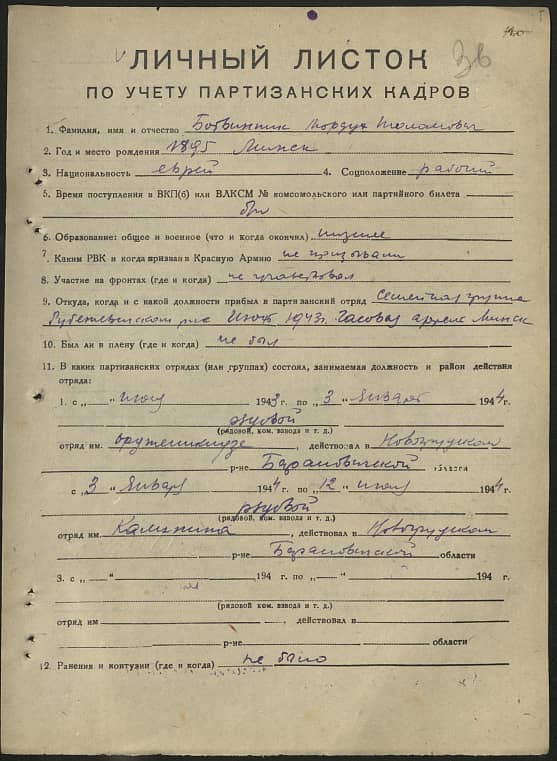 ЛИЧНЫЙ ЛИСТОК
ПО УЧЕТУ ПАРТИЗАНСКИХ КАДРОВ
1. Фамилия, имя и отчество Ботвинник Мордух
2. Год и место рождения 1895 Минск
3. Национальность еврей 4. Соцположение рабочий
5. Время поступления в ВКП(б) или ВЛКСМ № комсомольского или партийного билета
б/п
6. Образование: общее и военное (что и когда окончил) низшее
7. Каким РВК и когда призван в Красную Армию не призывали
8. Участие на фронтах (где и когда) не участвовал
9. Откуда, когда и с какой должности прибыл в партизанский отряд Семейная группа
июнь 1943 г. Часовая артель Минск
10. Был ли в плену (где и когда) не был
11. В каких партизанских отрядах (или группах) состоял, занимаемая должность и район действия
отряда:
1. с „ “ 1943 г. по „3“ Января 1944 г.
рядовой
(рядовой, ком. взвода и т. д.)
отряд им. , действовал в Новогрудском
р-не Барановичской области
с „3“ Января 1944 г. по „12“ 1944 г.
рядовой
(рядовой, ком. взвода и т. д.)
отряд им. Калинина , действовал в Новогрудском
р-не Барановичской области
3. с „ “ 194 г. по „ “ 194 г.
(рядовой, ком. взвода и т. д.)
отряд им , действовал в
р-не области
12. Ранения и контузии (где и когда) не было